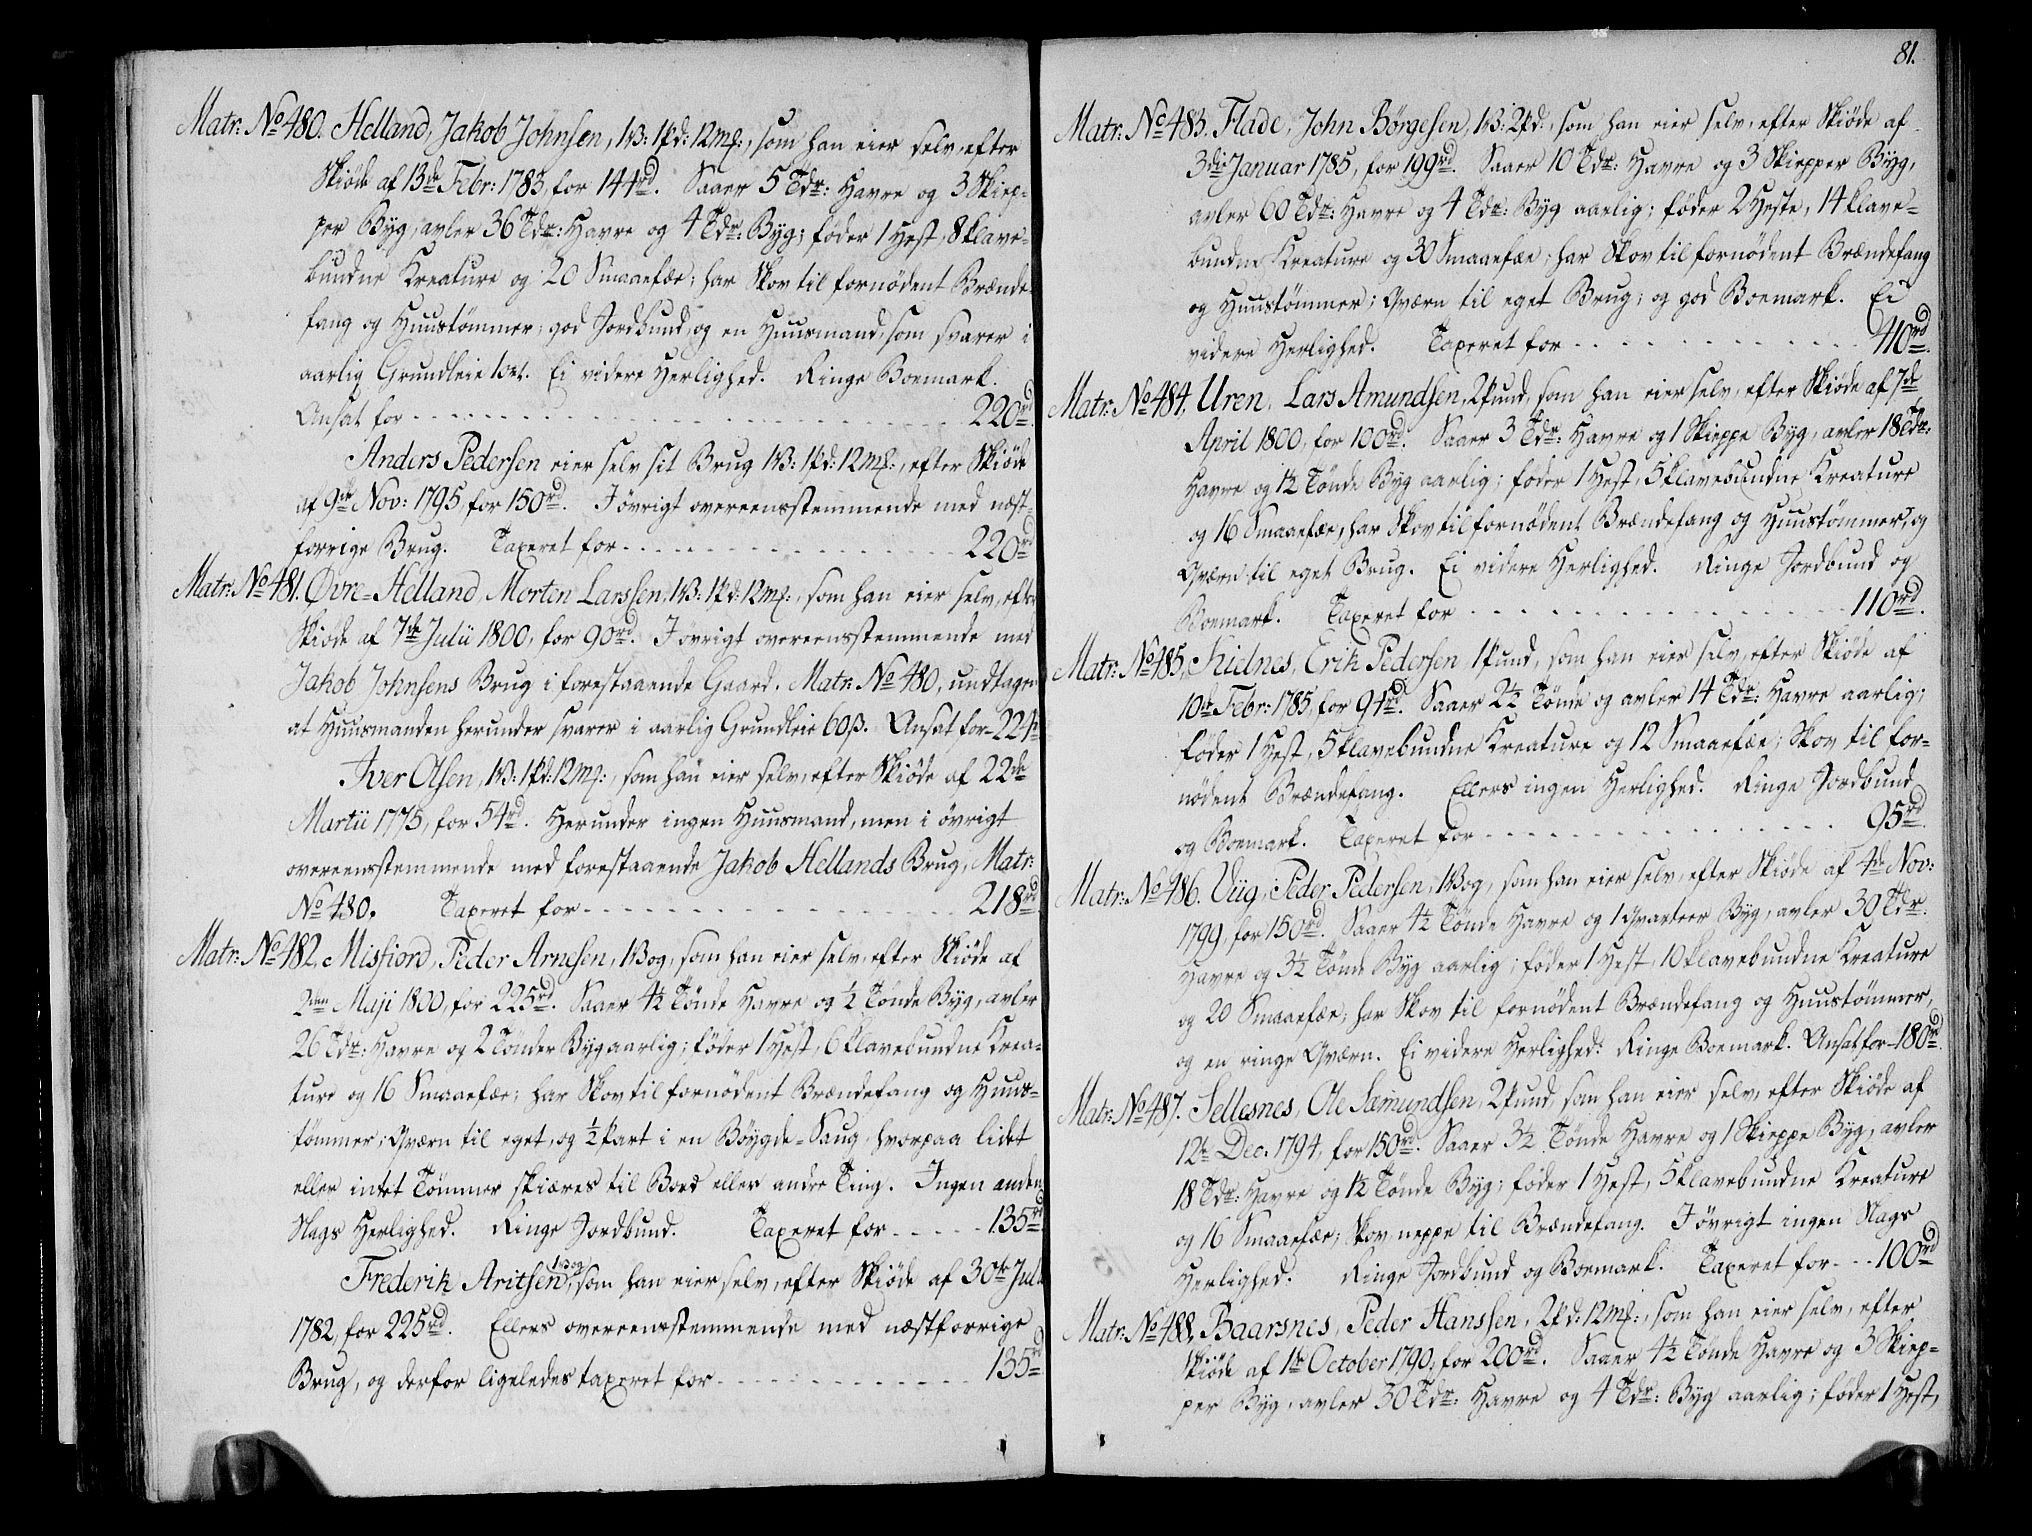 Matr: No 480. Helland, Jakob Johnsen, 1B: 1pd: 12mk:, som han eier selv, efter
Skiøde af 13de Febr: 1783, for 144rd. Saaer 5 Tdr: Havre og 3 Skiep-
per Byg, avler 36 Tdr: Havre og 4 Tdr: Byg; føder 1 Hest, 8 klave-
bundne Kreature og 20 Smaaefæe; har Skov til fornødent Brænde-
fang og Huustømmer; god Jordbund, og en Huusmand, som svarer i
aarlig Grundleie 1ort. Ei videre Herlighed. Ringe Boemark.
Ansat for - - - 220rd.
Anders Pedersen eier selv sit Brug 1B: 1pd: 12mk:, efter Skiøde
af 9de Nov: 1795, for 150rd. I øvrigt overeensstemmende med næst-
forrige Brug. Taxeret for - - - 220rd
Matr: No 481. Øvre-Helland, Morten Larssen, 1B: 1pd: 12mk:, som han eier selv, efter
Skiøde af 7de Julii 1800, for 90rd. I øvrigt overeensstemmende med
Jakob Johnsens Brug i forestaaende Gaard. Matr: No 480, undtagen
at Huusmanden herunder svarer i aarlig Grundleie 60ß. Ansat for - 221rd
Iver Olsen, 1B: 1pd: 12mk:, som han eier selv, efter Skiøde af 22de
Martii 1775, for 54rd. Herunder ingen Huusmand, men i øvrigt
overeensstemmende med forestaaende Jakob Hellands Brug, Matr:
No 480. Taxeret for - - - 218rd
Matr: No 482, Misfiord, Peder Arnesen, 1Bog, som han eier selv, efter Skiøde af
2den Maji 1800, for 225rd. Saaer 4½ Tønde Havre og ½ Tønde Byg, avler
26 Tdr: Havre og 2 Tønder Byg aarlig; føder 1 Hest, 6 klavebundne Krea-
ture og 16 Smaaefæe; har Skov til fornødent Brændefang og Huus-
tømmer; Qværn til eget, og ½ Part i en Bøygde-Saug, hvorpaa lidet
eller intet Tømmer skiæres til Bord eller andre Ting. Ingen anden
Slags Herlighed. Ringe Jordbund. Taxeret for - - - 135rd
Frederik Aritsen, 1Bog, som han eier selv, efter Skiøde af 30te Julii
1782, for 225rd. Ellers overeensstemmende med næstforrige
Brug, og derfor ligeledes taxeret for - - - 135rd
81.
Matr: No 483. Flade, John Børgesen, 1B: 2pd:, som han eier selv, efter Skiøde af
3die Januar 1785, for 199rd. Saaer 10 Tdr: Havre og 3 Skiepper Byg,
avler 60 Tdr: Havre og 4 Tdr: Byg aarlig; føder 2 Heste, 14 klave-
bundne Kreature og 30 Smaaefæe; har Skov til fornødent Brændefang
og Huustømmer; Qværn til eget Brug; og god Boemark. Ei
videre Herlighed. Taxeret for - - - 410rd.
Matr: No 484. Uren, Lars Amundsen, 2pund, som han eier selv, efter Skiøde af 7de
April 1800, for 100rd. Saaer 3 Tdr: Havre og 1 Skieppe Byg, avler 18 Tdr:
Havre og 1½ Tønde Byg aarlig; føder 1 Hest, 5 klavebundne Kreature
og 16 Smaaefæe, har Skov til fornødent Brændefang og Huustømmer, og
Qværn til eget Brug. Ei videre Herlighed. Ringe Jordbund og
Boemark. Taxeret for - - - 110rd.
Matr: No 485, Skidnes, Erik Pedersen, 1pund, som han eier selv, efter Skiøde af
10de Febr: 1785, for 94rd. Saaer 2½ Tønde og avler 14 Tdr: Havre aarlig;
føder 1 Hest, 5 klavebundne Kreature og 12 Smaaefæe; Skov til for-
nødent Brændefang. Ellers ingen Herlighed. Ringe Jordbund
og Boemark. Taxeret for - - - 95rd.
Matr: No 486. Viig, Peder Pedersen, 1Bog, som han eier selv, efter Skiøde af 4de Nov:
1799, for 150rd. Saaer 4½ Tønde Havre og 1 Qvarteer Byg, avler 30 Tdr.
Havre og 3½ Tønde Byg aarlig; føder 1 Hest, 10 klavebundne Kreature
og 20 Smaaefæe; har Skov til fornødent Brændefang og Huustømmer,
og en ringe Qværn. Ei videre Herlighed. Ringe Boemark. Ansat for - 180rd.
Matr: No 487. Sellesnes, Ole Sæmundsen, 2pund, som han eier selv, efter Skiøde af
12te Dec: 1794, for 150rd. Saaer 3½ Tønde Havre og 1 Skieppe Byg, avler
18 Tdr: Havre og 1½ Tønde Byg; føder 1 Hest, 5 klavebundne Kreature
og 16 Smaaefæe; Skov neppe til Brændefang. I øvrigt ingen Slags
Herlighed. Ringe Jordbund og Boemark. Taxeret for - - - 100rd
Matr: No 488, Baarsnes, Peder Hanssen, 2pd: 12mk:, som han eier selv, efter
Skiøde af 1te October 1790, for 200rd. Saaer 4½ Tønde Havre og 3 Skiep-
per Byg, avler 30 Tdr: Havre og 4 Tdr: Byg aarlig; føder 1 Hest,